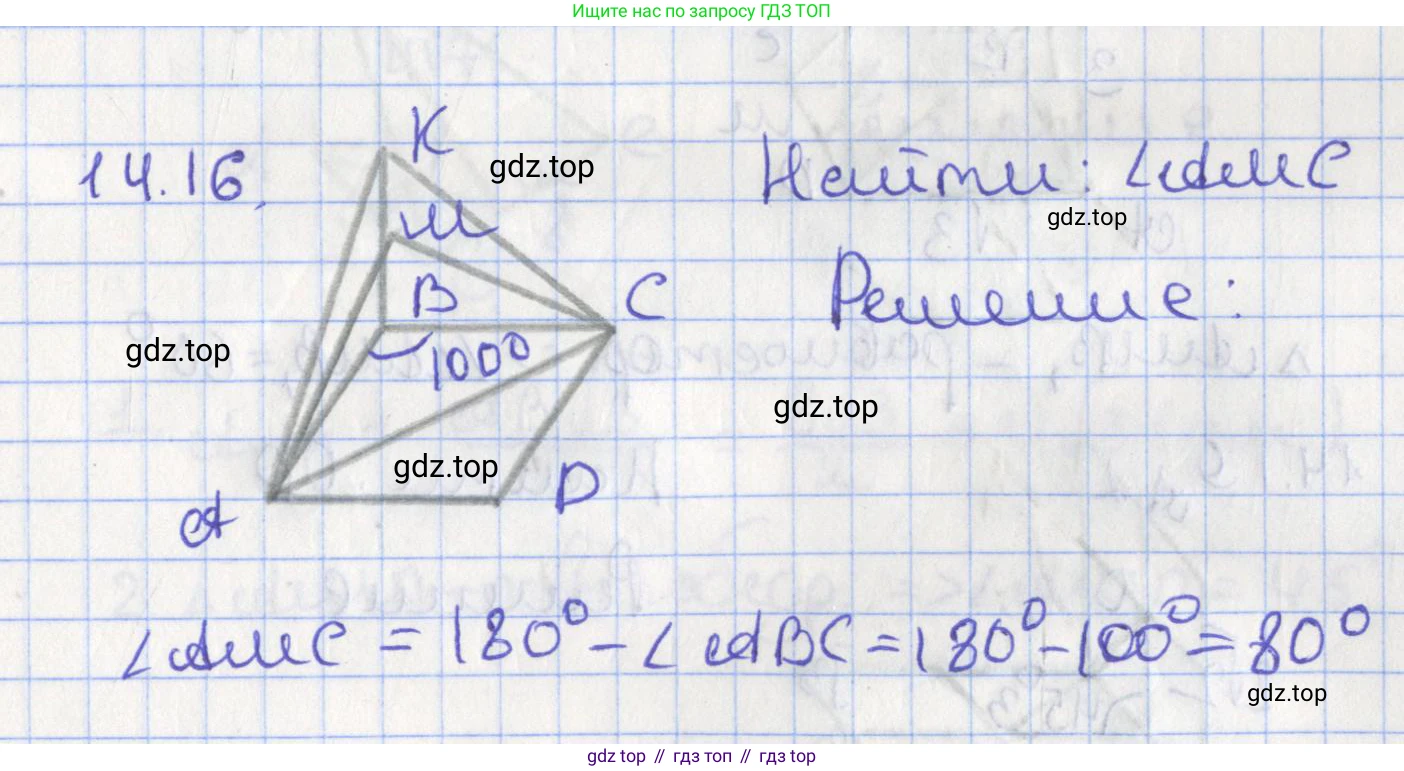 Ищите нас по запросу ГДЗ ТОП
14.16.
K
gdz.top
Найти: ∠AMC
gdz.top
M
B
C
Решение:
100°
gdz.top
gdz.top
gdz.top
D
A
∠AMC = 180° - ∠ABC = 180° - 100° = 80°
gdz.top
gdz top // гдз топ // gdz top